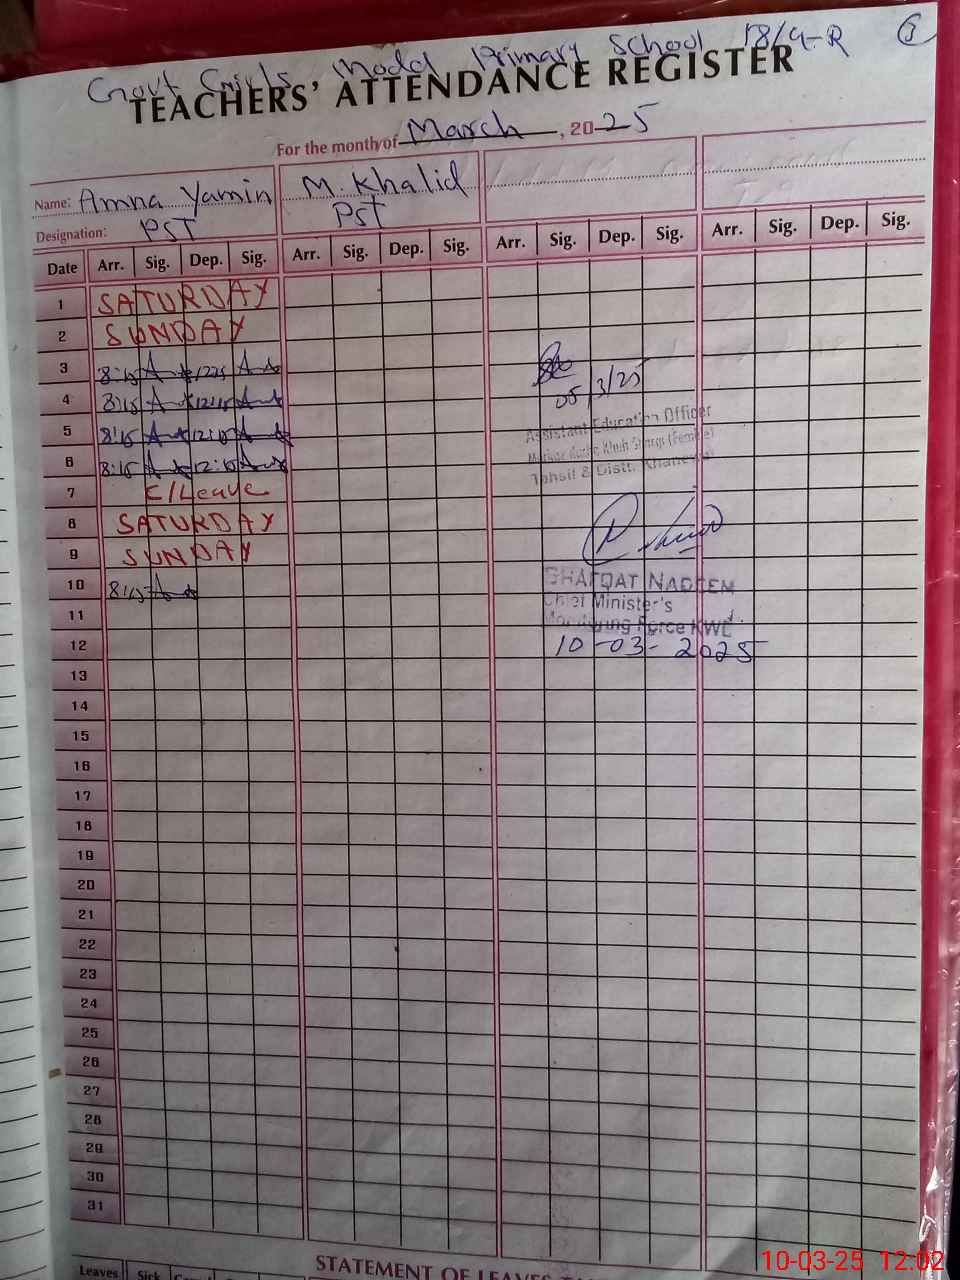 Govt Girls Model Primary School 18/9-R
TEACHERS' ATTENDANCE REGISTER
For the month of March, 2025
Name: Amna Yamin M. Khalid
Designation: PST PST
Date Arr. Sig. Dep. Sig. Arr. Sig. Dep. Sig. Arr. Sig. Dep. Sig. Arr. Sig. Dep. Sig.
1 SATURDAY
2 SUNDAY
3 8:15 1225
4 8:15 12:15
05/3/25
5 8:15 12:15
Assistant Education Officer
6 8:15 12:15
(Female)
Tehsil & Distt. Khanewal
7 C/Leave
8 SATURDAY
9 SUNDAY
10 8:15
SHAFQAT NADEEM
11
Chief Minister's
Monitoring Force KWL
12
10-03-2025
13
14
15
16
17
18
19
20
21
22
23
24
25
26
27
28
29
30
31
STATEMENT OF LEAVES
Leaves Sick
10-03-25 12:02